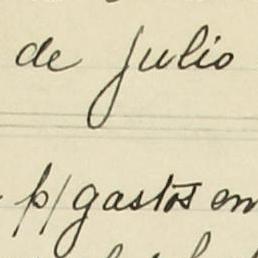 de Julio
p/ gastos en